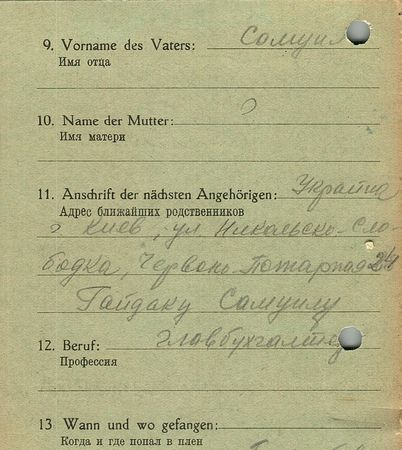 9. Vorname des Vaters: Самуил
Имя отца
10. Name der Mutter: ?
Имя матери
11. Anschrift der nächsten Angehörigen: Украина
Адрес ближайших родственников
г. Киев, ул. Никольско-Сло-
бодка, Червоно-Пожарная 24
Гайдаку Самуилу
12. Beruf: Главбухгалтер
Профессия
13 Wann und wo gefangen:
Когда и где попал в плен